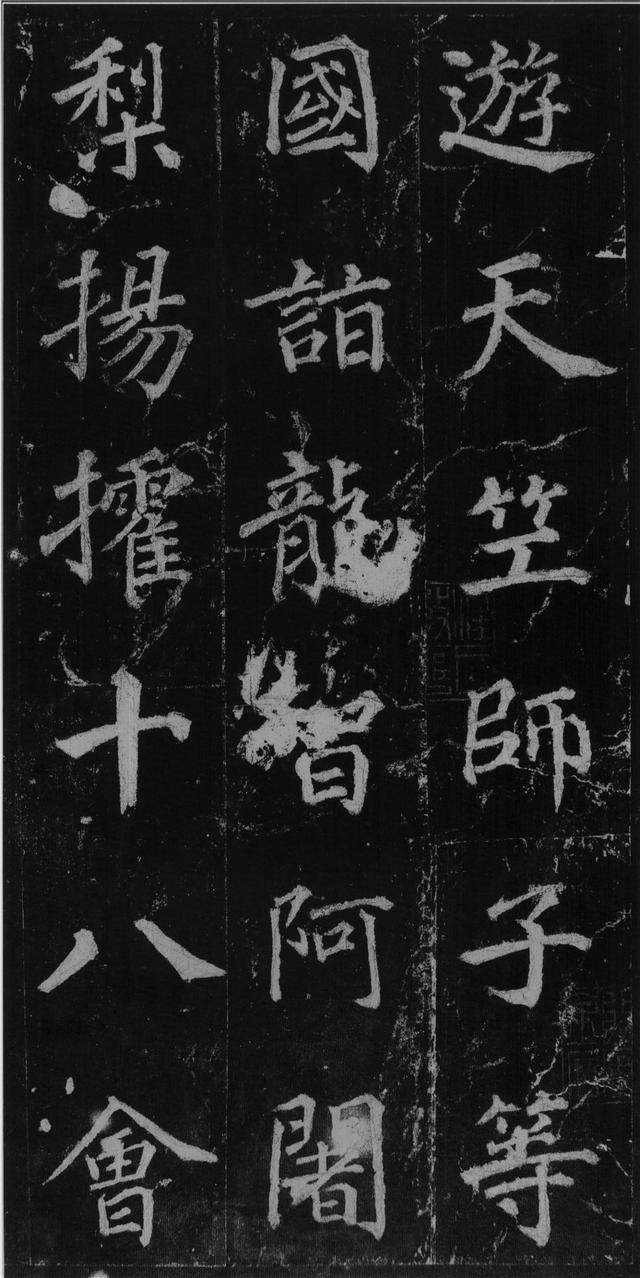 遊天竺師子等
國詣龍智阿闍
梨揚擢十八會